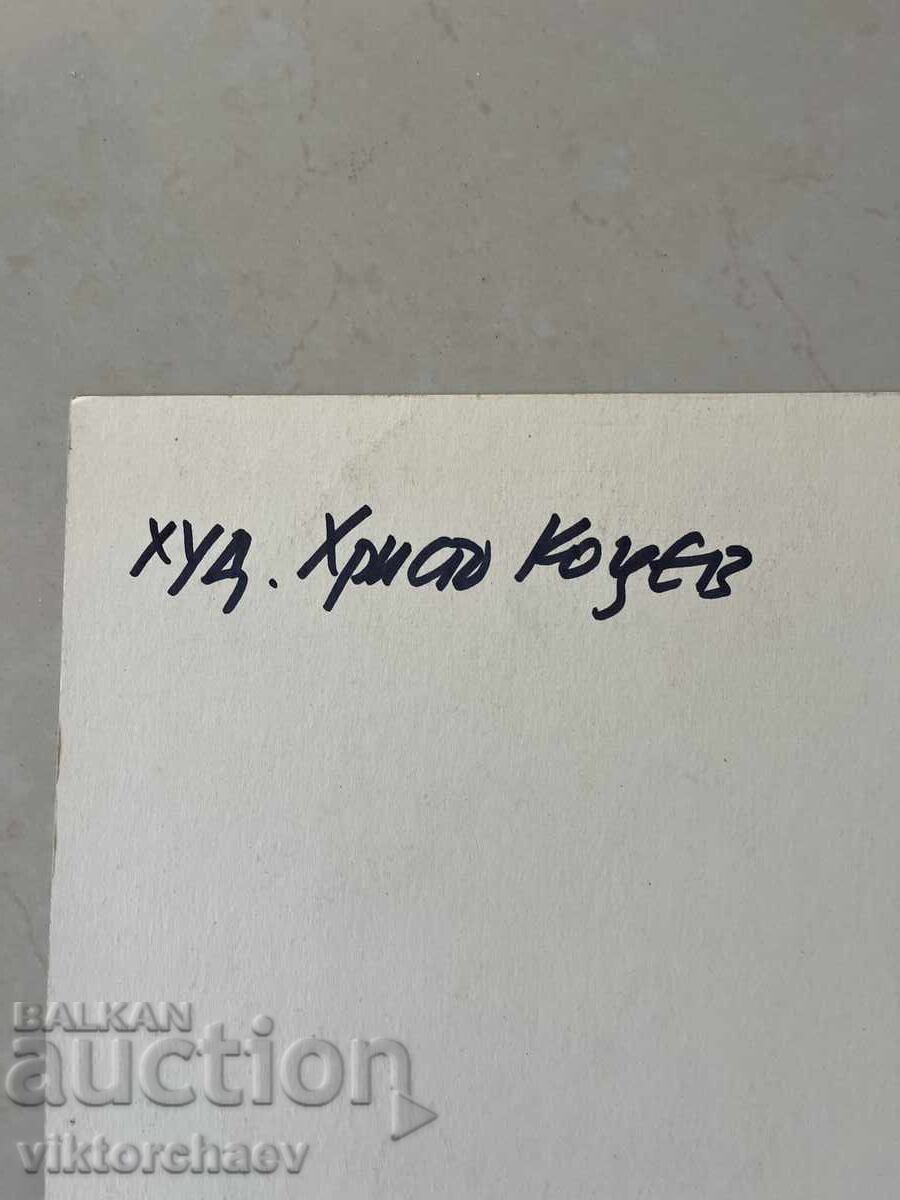 худ. Христо Коцев
BALKAN
auction
viktorchaev